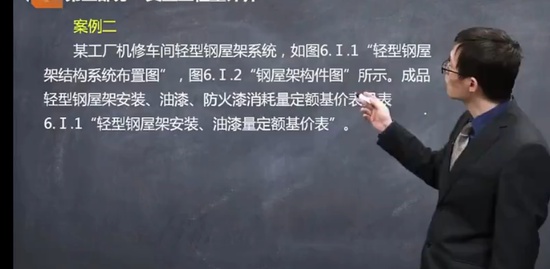 案例二
某工厂机修车间轻型钢屋架系统，如图6.Ⅰ.1“轻型钢屋
架结构系统布置图”，图6.Ⅰ.2“钢屋架构件图”所示。成品
轻型钢屋架安装、油漆、防火漆消耗量定额基价表见表
6.Ⅰ.1“轻型钢屋架安装、油漆量定额基价表”。